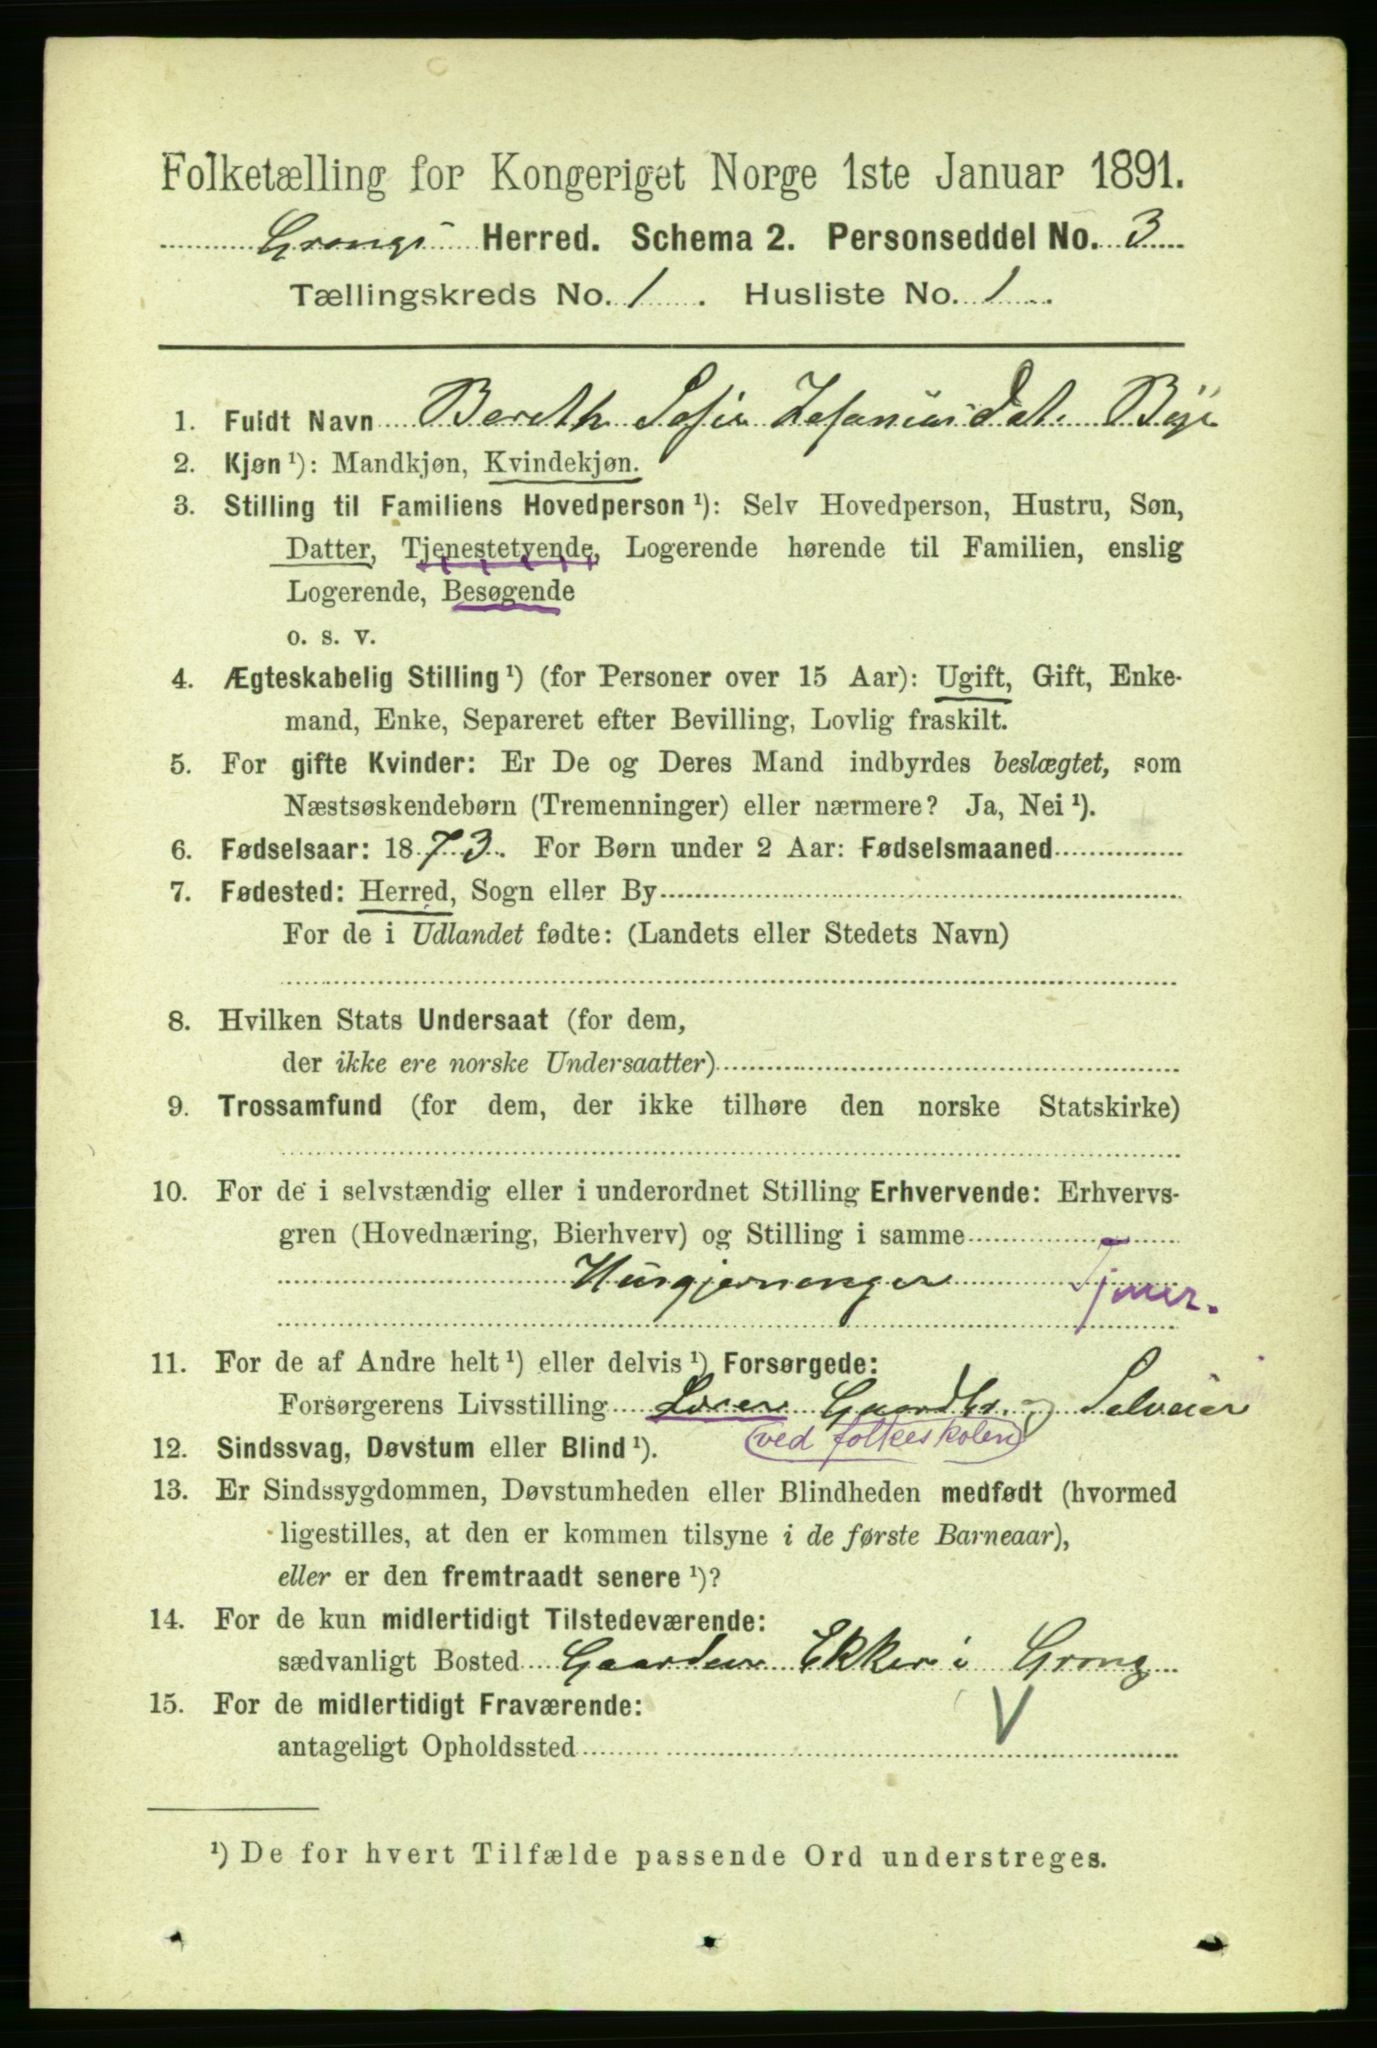 Folketælling for Kongeriget Norge 1ste Januar 1891.
Grongs Herred. Schema 2. Personseddel No. 3
Tællingskreds No. 1. Husliste No. 1.
1. Fuldt Navn Bereth Sofie Zefaniasdat. Bye
2. Kjøn ¹): Mandkjøn, Kvindekjøn.
3. Stilling til Familiens Hovedperson ¹): Selv Hovedperson, Hustru, Søn,
Datter, Tjenestetyende, Logerende hørende til Familien, enslig
Logerende, Besøgende
o. s. v.
4. Ægteskabelig Stilling ¹) (for Personer over 15 Aar): Ugift, Gift, Enke-
mand, Enke, Separeret efter Bevilling, Lovlig fraskilt.
5. For gifte Kvinder: Er De og Deres Mand indbyrdes beslægtet, som
Næstsøskendebørn (Tremenninger) eller nærmere? Ja, Nei ¹).
6. Fødselsaar: 1873. For Børn under 2 Aar: Fødselsmaaned
7. Fødested: Herred, Sogn eller By
For de i Udlandet fødte: (Landets eller Stedets Navn)
8. Hvilken Stats Undersaat (for dem,
der ikke ere norske Undersaatter)
9. Trossamfund (for dem, der ikke tilhøre den norske Statskirke)
10. For de i selvstændig eller i underordnet Stilling Erhvervende: Erhvervs-
gren (Hovednæring, Bierhverv) og Stilling i samme
Husgjerninger
11. For de af Andre helt ¹) eller delvis ¹) Forsørgede:
Forsørgerens Livsstilling Lærer Gaardbr. og Selveier
12. Sindssvag, Døvstum eller Blind ¹). (ved folkeskolen)
13. Er Sindssygdommen, Døvstumheden eller Blindheden medfødt (hvormed
ligestilles, at den er kommen tilsyne i de første Barneaar),
eller er den fremtraadt senere ¹)?
14. For de kun midlertidigt Tilstedeværende:
sædvanligt Bosted Gaarden Ekker i Grong
15. For de midlertidigt Fraværende: V
antageligt Opholdssted
¹) De for hvert Tilfælde passende Ord understreges.